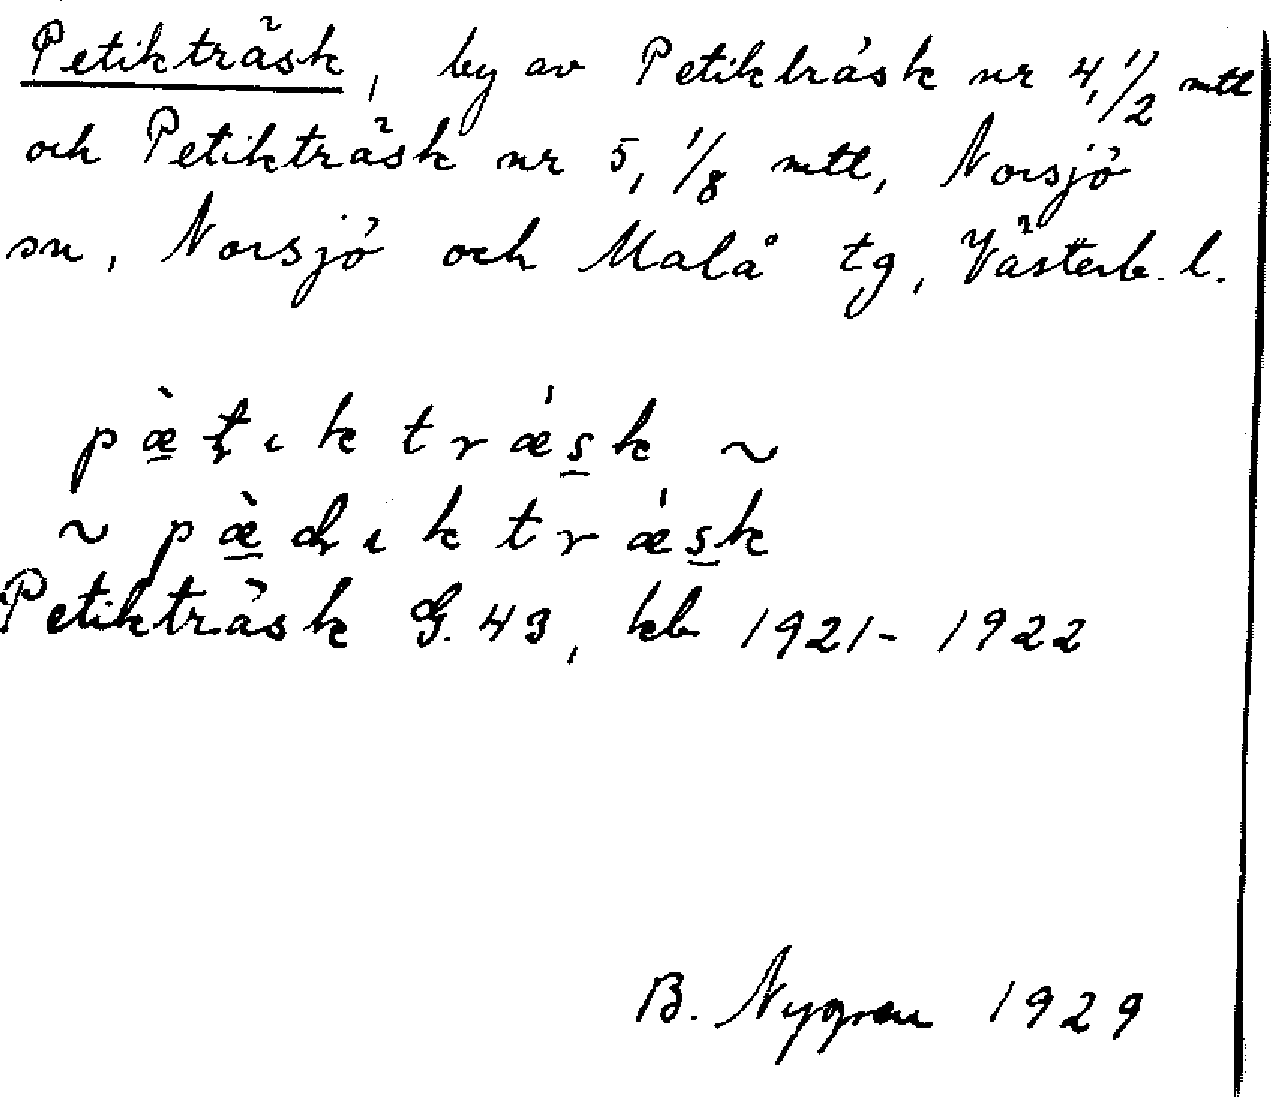 Petikträsk, by av Petikträsk nr 4, 1/2 mtl
och Petikträsk nr 5, 1/8 mtl, Norsjö
sn, Norsjö och Malå tg, Västerb. l.
pæ̱̀t̢ık trǽs̱k ~
~ pæ̱̀d̢ık trǽs̱k
Petikträsk G. 43, kb 1921-1922
B. Nygren 1929